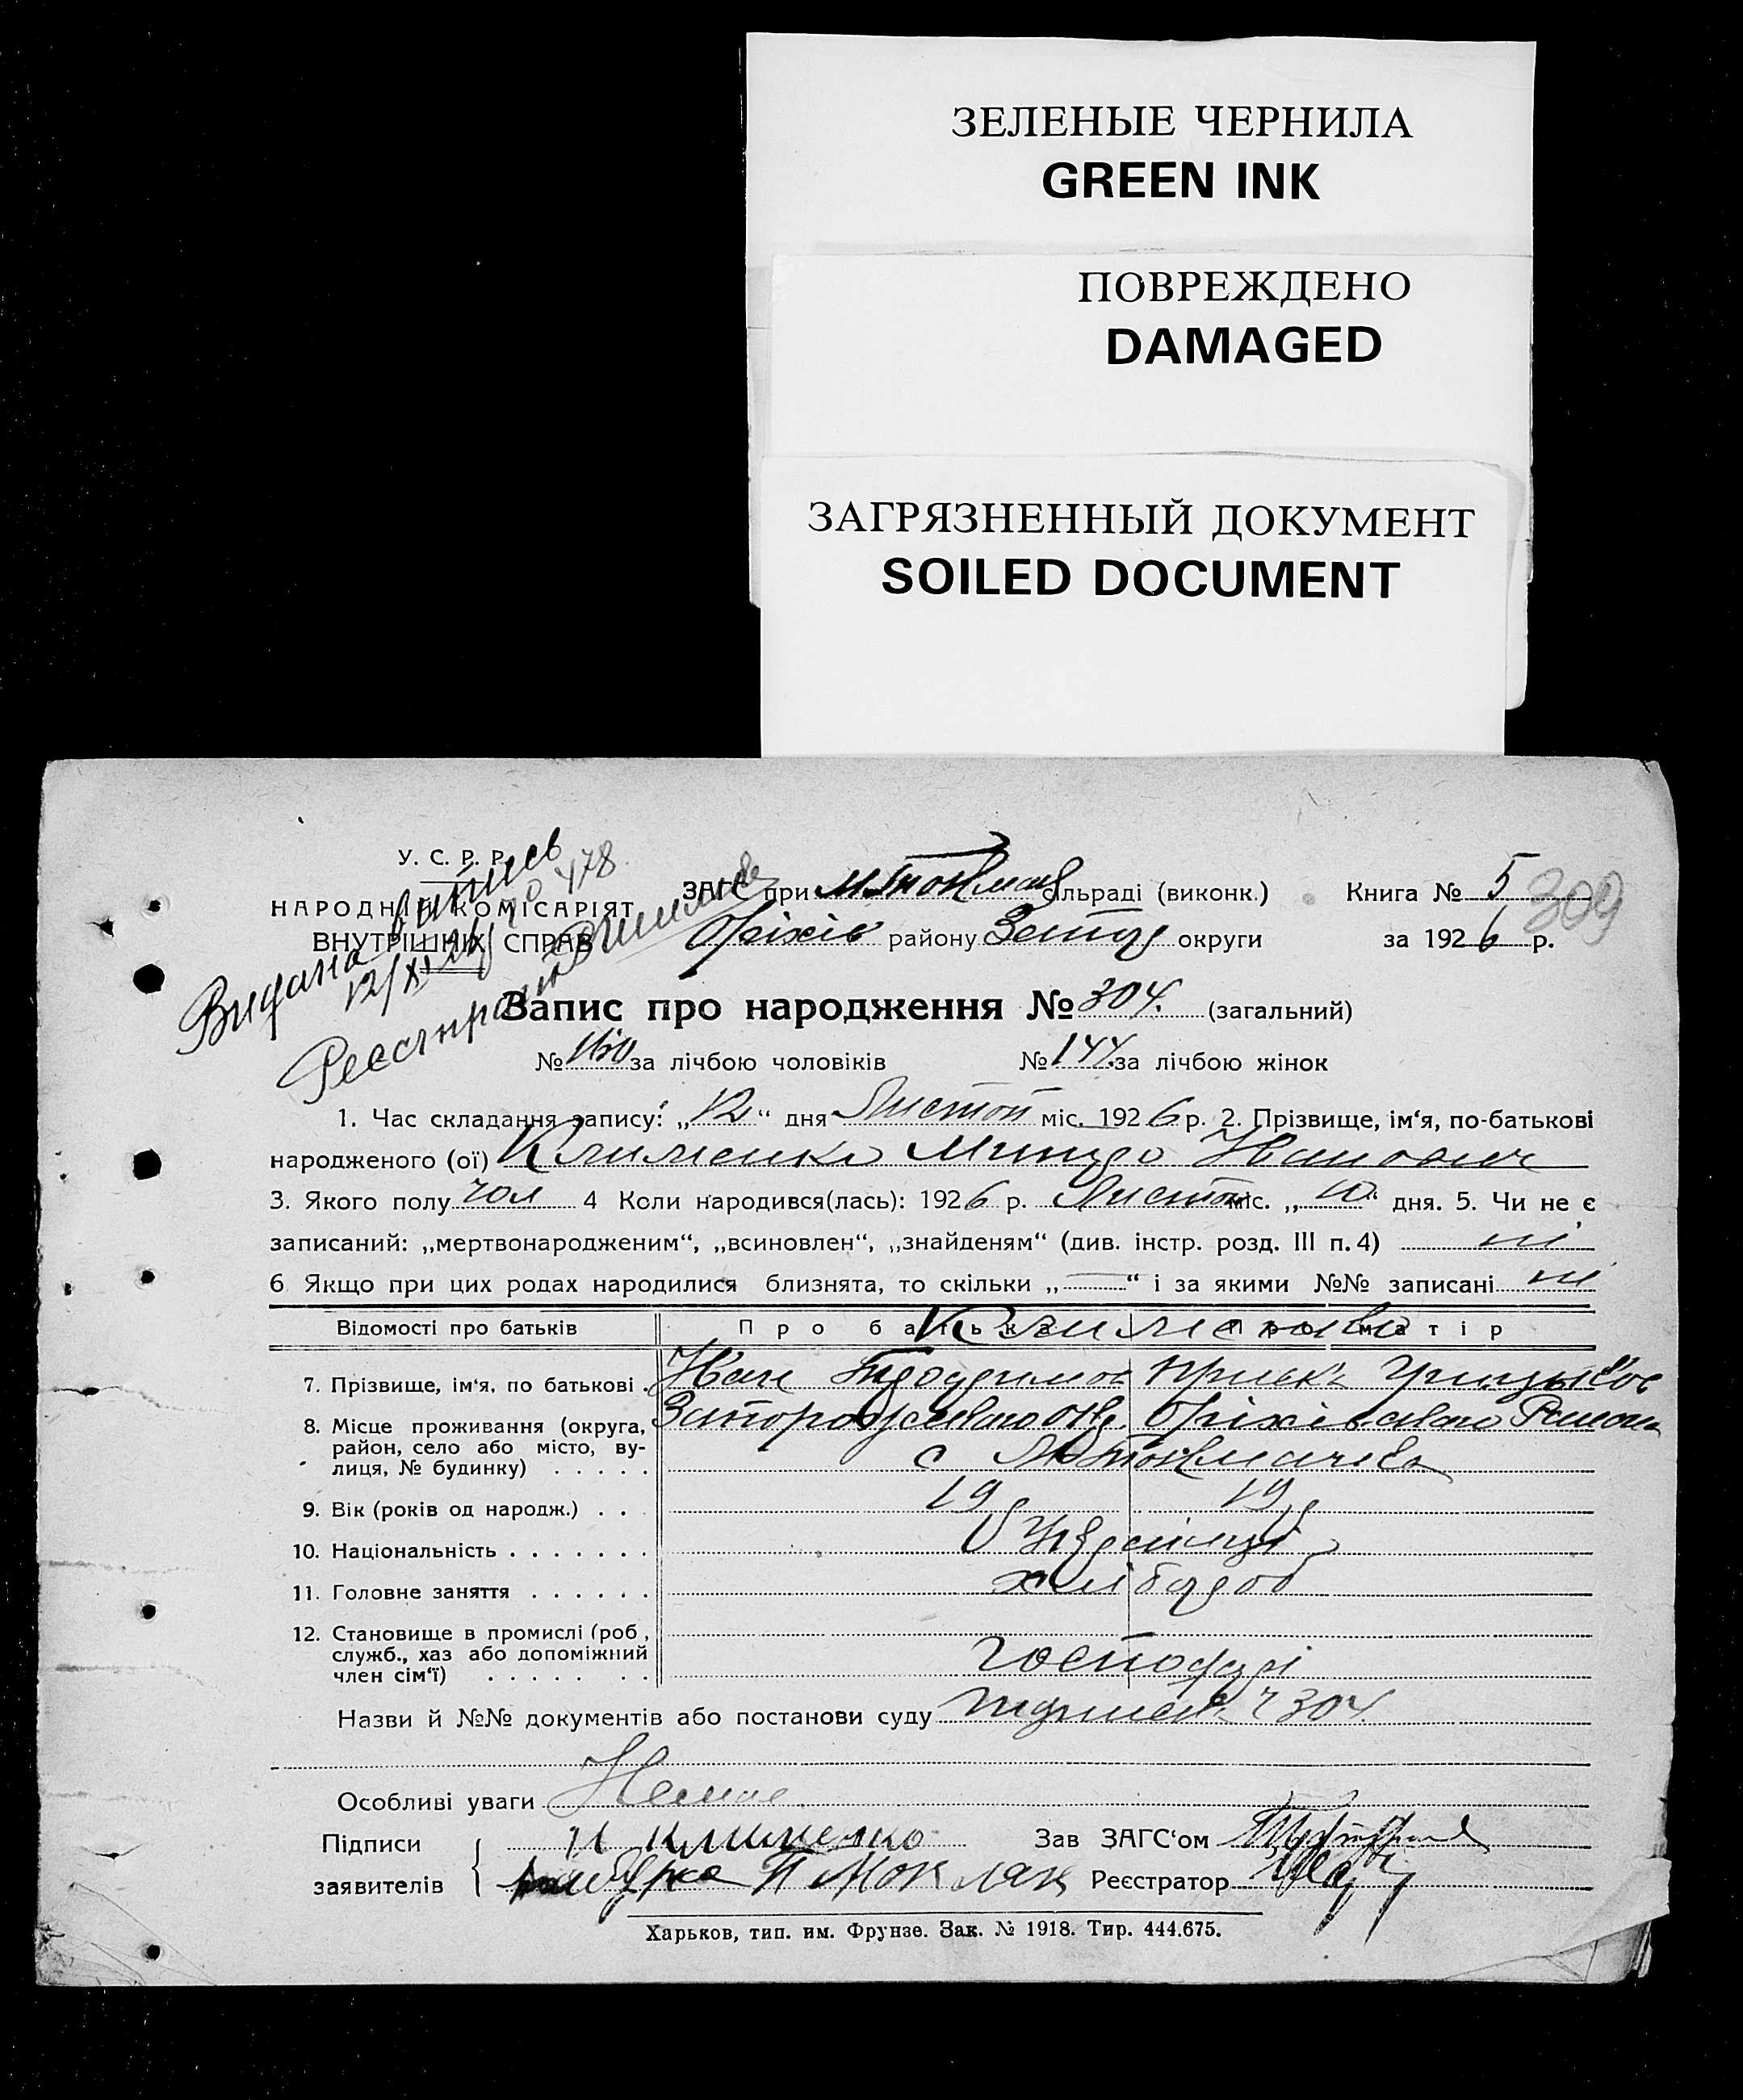 ЗЕЛЕНЫЕ ЧЕРНИЛА
GREEN INK
ПОВРЕЖДЕНО
DAMAGED
ЗАГРЯЗНЕННЫЙ ДОКУМЕНТ
SOILED DOCUMENT
У. С. Р. Р.
НАРОДНІЙ КОМІСАРІЯТ
ВНУТРІШНІХ СПРАВ
Видана
12/XI 26
№ 478
ЗАГС при М. Токмац сільраді (виконк.)
Книга № 5
309
Оріхів району Запор округи
за 1926 р.
Запис про народження № 304. (загальний)
№ 160 за лічбою чоловіків № 144. за лічбою жінок
1. Час складання запису: „12“ дня Листоп міс. 1926 р. 2. Прізвище, ім‘я, по-батькові
народженого (ої) Клименко Іванович
3. Якого полу чол 4 Коли народився(лась): 1926 р. Листоп міс. „10“ дня. 5. Чи не є
записаний: „мертвонародженим“, „всиновлен“, „знайденям“ (див. інстр. розд. III п. 4) ні
6 Якщо при цих родах народилися близнята, то скільки „—“ і за якими №№ записані ні
Відомості про батьків Про батька Про матір
Клименкови
7. Прізвище, ім‘я, по батькові Іван
8. Місце проживання (округа, район, село або місто, вулиця, № будинку) Запорожського Окр. Оріхівського Района
с М Токмачка
9. Вік (років од народж.) 19 р 19 р
10. Національність Українці
11. Головне заняття хлібороб
12. Становище в промислі (роб., служб., хаз або допоміжний член сім‘ї) господарі
Назви й №№ документів або постанови суду 304
Особливі уваги Немає
Підписи заявителів И Клименко
П Мокляк
Зав ЗАГС‘ом
Реєстратор
Харьков, тип. им. Фрунзе. Зак. № 1918. Тир. 444.675.